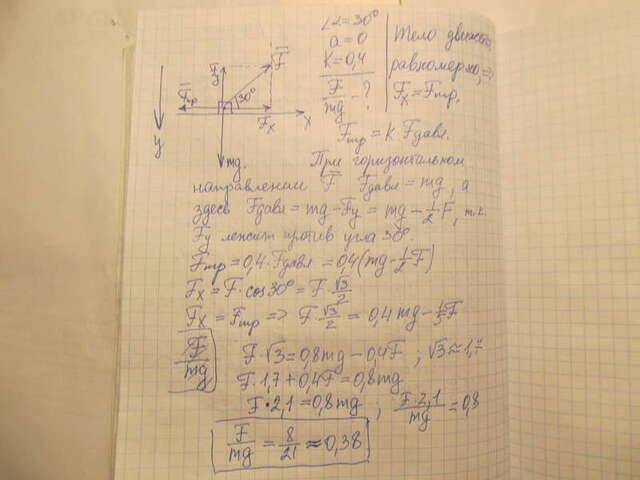 ∠α = 30°
a = 0
K = 0,4
F/mg - ?
Тело движется
равномерно, =>
Fx = Fтр.
Fy
F̄
F̄тр
30°
Fx
X
y
mg.
Fтр = K · Fдавл.
При горизонтальном
направлении F̄ Fдавл = mg, а
здесь Fдавл = mg - Fy = mg - 1/2 F, т.к.
Fy лежит против угла 30°
Fтр = 0,4 · Fдавл = 0,4(mg - 1/2 F)
Fx = F · cos 30° = F · √3/2
Fx = Fтр => F · √3/2 = 0,4 mg - 1/5 F
F/mg
F · √3 = 0,8 mg - 0,4 F ; √3 ≈ 1,7
F · 1,7 + 0,4 F = 0,8 mg
F · 2,1 = 0,8 mg ; F · 2,1/mg = 0,8
F/mg = 8/21 ≈ 0,38